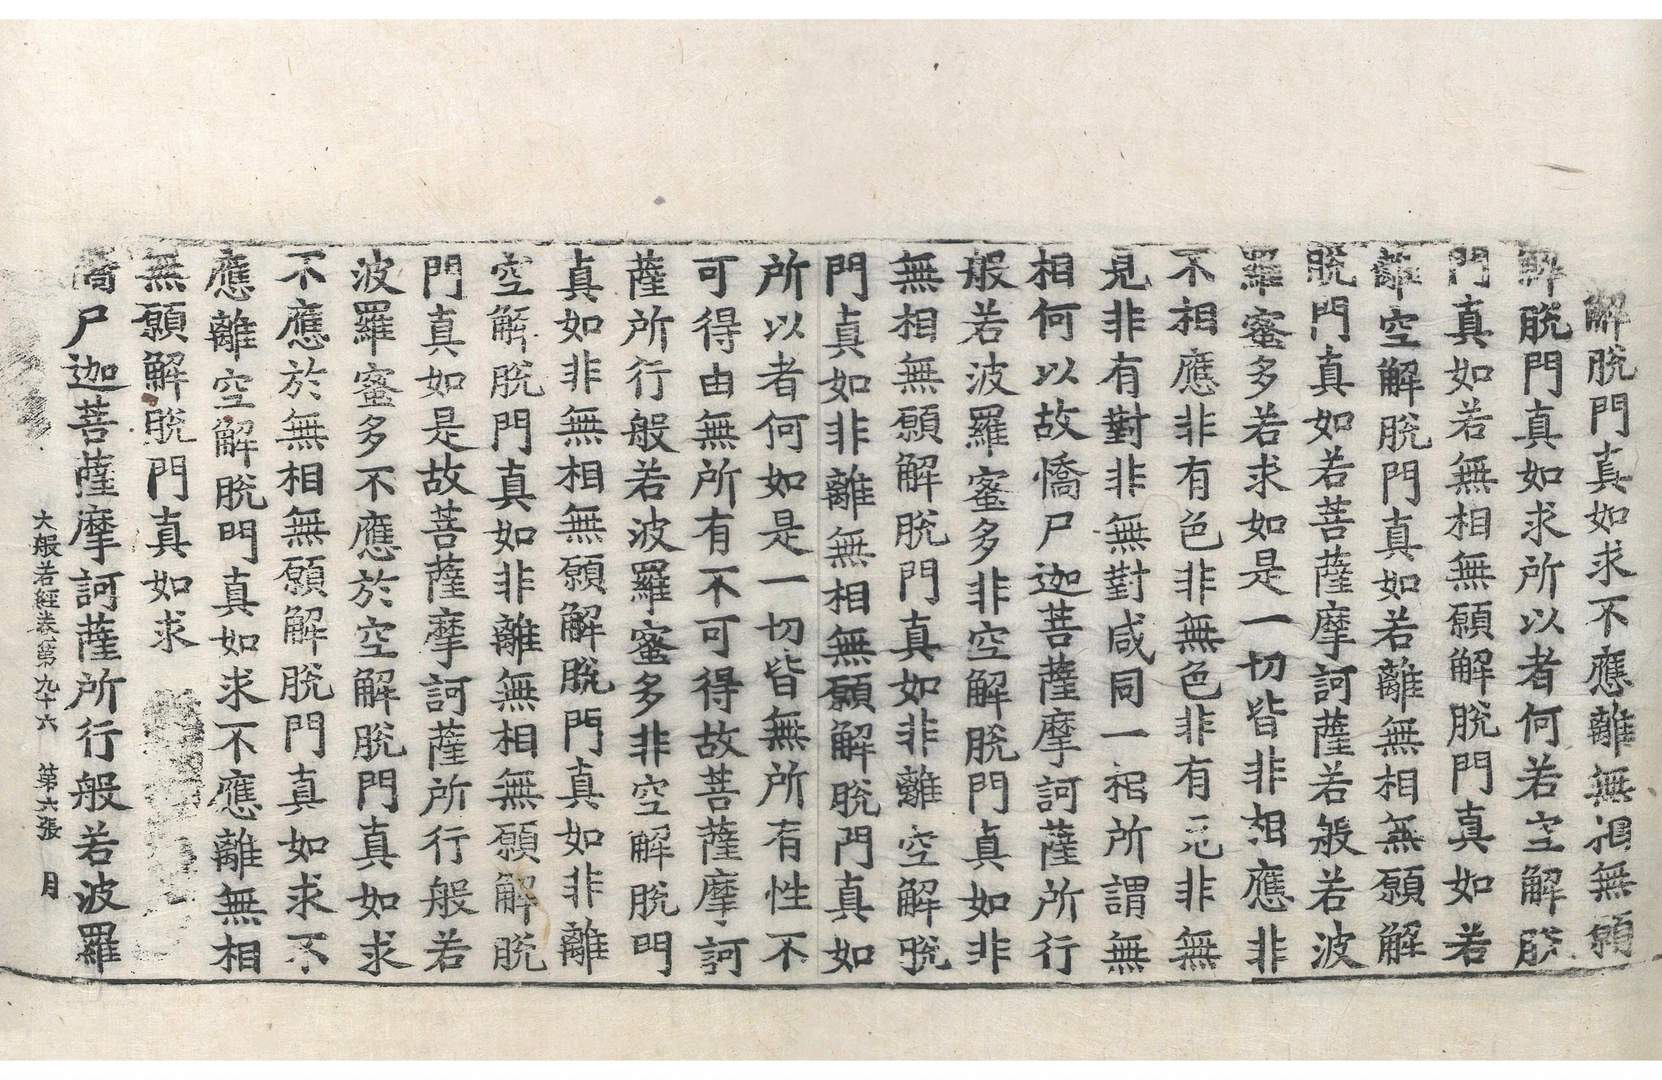 解脫門真如求不應離無相無願
解脫門真如求所以者何若空解脫
門真如若無相無願解脫門真如若
離空解脫門真如若離無相無願解
脫門真如若菩薩摩訶薩若般若波
羅蜜多若求如是一切皆非相應非
不相應非有色非無色非有見非無
見非有對非無對咸同一相所謂無
相何以故憍尸迦菩薩摩訶薩所行
般若波羅蜜多非空解脫門真如非
無相無願解脫門真如非離空解脫
門真如非離無相無願解脫門真如
所以者何如是一切皆無所有性不
可得由無所有不可得故菩薩摩訶
薩所行般若波羅蜜多非空解脫門
真如非無相無願解脫門真如非離
空解脫門真如非離無相無願解脫
門真如是故菩薩摩訶薩所行般若
波羅蜜多不應於空解脫門真如求
不應於無相無願解脫門真如求不
應離空解脫門真如求不應離無相
無願解脫門真如求
憍尸迦菩薩摩訶薩所行般若波羅
大般若經卷第九十六 第六張 月